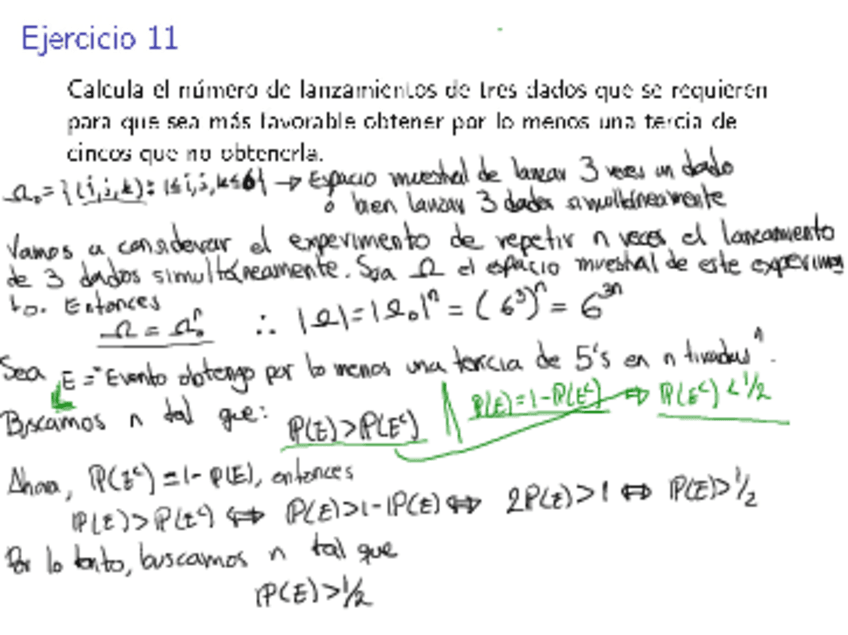 Ejercicio 11
Calcula el número de lanzamientos de tres dados que se requieren
para que sea más favorable obtener por lo menos una tercia de
cincos que no obtenerla.
Ω₀ = {(i,j,k): 1≤i,j,k≤6} → Espacio muestral de lanzar 3 veces un dado
ó bien lanzar 3 dados simultáneamente
Vamos a considerar el experimento de repetir n veces el lanzamiento
de 3 dados simultáneamente. Sea Ω el espacio muestral de este experimen
to. Entonces
Ω = Ω₀ⁿ ∴ |Ω| = |Ω₀|ⁿ = (6³)ⁿ = 6³ⁿ
Sea E = "Evento obtengo por lo menos una tercia de 5's en n tiradas".
Buscamos n tal que: P(E) > P(Eᶜ) P(E) = 1 - P(Eᶜ) ⇔ P(Eᶜ) < 1/2
Ahora, P(Eᶜ) = 1 - P(E), entonces
P(E) > P(Eᶜ) ⇔ P(E) > 1 - P(E) ⇔ 2P(E) > 1 ⇔ P(E) > 1/2
Por lo tanto, buscamos n tal que
P(E) > 1/2